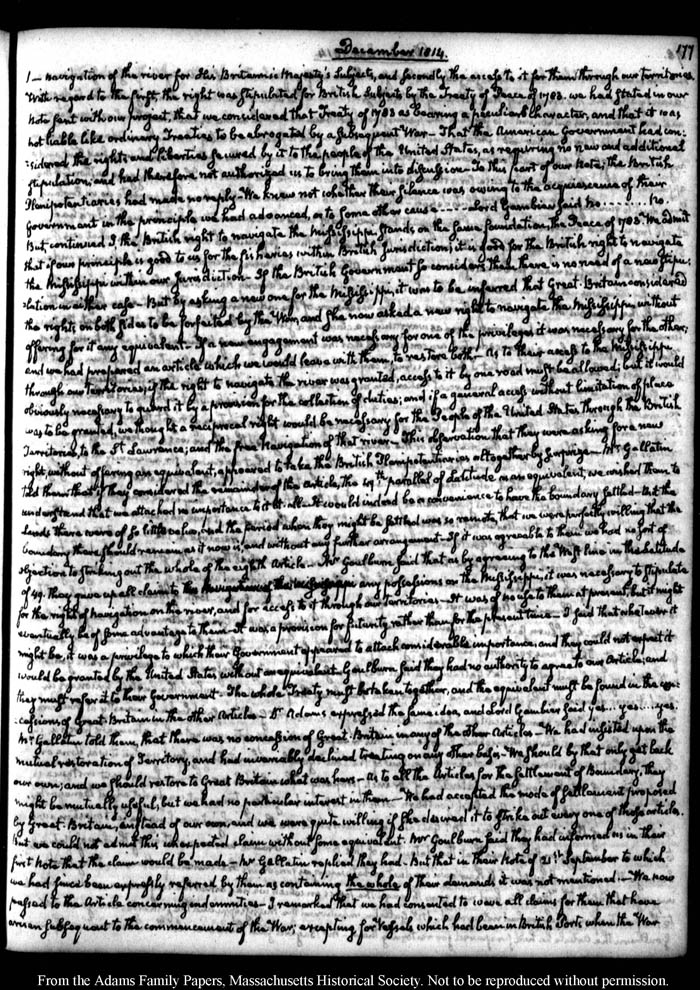 December 1814.
177
1— navigation of the river for His Britannic Majesty's Subjects, and secondly the access to it for them through our territories
With regard to the first, the right was stipulated for British Subjects by the Treaty of Peace of 1783. we had stated in our
Note sent with our project, that we considered that Treaty of 1783 as bearing a peculiar character, and that it was
not liable like ordinary Treaties to be abrogated by a subsequent War— That the American Government had con:
:sidered the rights and liberties secured by it to the people of the United States, as requiring no new and additional
stipulation; and had therefore not authorized us to bring them into discussion— To this part of our Note, the British
Plenipotentiaries had made no reply— We knew not whether their silence was owing to the acquiescence of their
Government in the principle we had advanced, or to some other cause..... Lord Gambier said No...... No.
But continued I the British right to navigate the Mississippi stands on the same foundation, the Peace of 1783. We admit
that if our principle is good to us for the fisheries within British Jurisdiction, it is good for the British right to navigate
the Mississippi within our Jurisdiction— If the British Government so consider them there is no need of a new stipu:
:lation in either case— But by asking a new one for the Mississippi, it was to be inferred that Great-Britain considered
the rights on both sides to be forfeited by the War, and she now asked a new right to navigate the Mississippi without
offering for it any equivalent— If a new engagement was necessary for one of the privileges it was necessary for the other,
and we had prepared an article which we would leave with them, to restore both— As to their access to the Mississippi
through our Territories; if the right to navigate the river was granted, access to it by one road must be allowed; but it would
obviously necessary to guard it by a provision for the collection of duties; and if a general access without limitation of place
was to be granted, we thought a reciprocal right would be necessary for the People of the United States through the British
Territories, to the St Lawrence; and the free Navigation of that river— This observation that they were asking for a new
right without offering an equivalent, appeared to take the British Plenipotentiaries altogether by surprize— Mr Gallatin
told them that if they considered the remainder of the Article, the 49th parallel of Latitude as an equivalent, we wished them to
understand that we attached no importance to it at all— It would indeed be a convenience to have the boundary settled— But the
Lands there were of so little value, and the period when they might be settled was so remote, that we were perfectly willing that the
boundary there should remain as it now is, and without any further arrangement— If it was agreeable to them we had no sort of
objection to striking out the whole of the eighth Article— Mr Goulburn said that as by agreeing to the West line in the latitude
of 49. they gave up all claim to the Navigation of the Mississippi any possessions on the Mississippi, it was necessary to stipulate
for the right of navigation on the river, and for access to it through our Territories— It was of no use to them at present, but it might
eventually be of some advantage to them— It was a provision for futurity rather than for the present time— I said that whatever it
might be, it was a privilege to which their Government appeared to attach considerable importance; and they could not expect it
would be granted by the United States without an equivalent— Goulburn said they had no authority to agree to our Article; and
they must refer it to their Government— The whole Treaty must be taken together, and the equivalent must be found in the con:
:cessions of Great-Britain in the other Articles— Dr Adams expressed the same idea, and Lord Gambier said yes... yes... yes.
Mr Gallatin told them, that there was no concession of Great-Britain in any of the other Articles— We had insisted upon the
mutual restoration of Territory, and had invariably declined treating on any other basis— We should by that only get back
our own; and we should restore to Great Britain what was hers— As to all the Articles for the settlement of Boundary, they
might be mutually useful, but we had no particular interest in them— We had accepted the mode of settlement proposed
by Great-Britain, instead of our own, and we were quite willing if she desired it to strike out every one of those articles.
But we could not admit this unexpected claim without some equivalent. Mr Goulburn said they had informed us in their
first Note that the claim would be made— Mr Gallatin replied they had— But that in their Note of 21st September to which
we had since been expressly referred by them as containing the whole of their demands it was not mentioned— We now
passed to the Article concerning indemnities— I remarked that we had consented to wave all claims for them that have
arisen subsequent to the commencement of the War; excepting for Vessels which had been in British Ports when the War
From the Adams Family Papers, Massachusetts Historical Society. Not to be reproduced without permission.